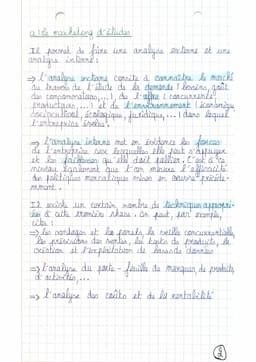 a) le marketing d'études
Il permet de faire une analyse externe et une
analyse interne :
=> l'analyse externe consiste à connaître le marché
au travers de l'étude de la demande (besoins, goût
des consommateurs, ...) de l'offre (concurrents,
producteurs, ...) et de l'environnement (économique,
socioculturel, écologique, juridique, ...) dans lequel
l'entreprise évolue.
=> l'analyse interne met en évidence les forces
de l'entreprise sur lesquelles elle peut s'appuyer
et les faiblesses qu'elle doit pallier. C'est à ce
niveau également que l'on mesure l'efficacité
des politiques mercatiques mises en oeuvre précédem-
mment.
Il existe un certain nombre de techniques appropri-
ées à cette première phase. On peut, par exemple,
citer :
=> les sondages et les panels, la veille concurrentielle,
les prévisions des ventes, les tests de produits, la
création et l'exploitation de bases de données
=> l'analyse du porte-feuille de marques de produits,
d'activités, ...
=> l'analyse des coûts et de la rentabilité